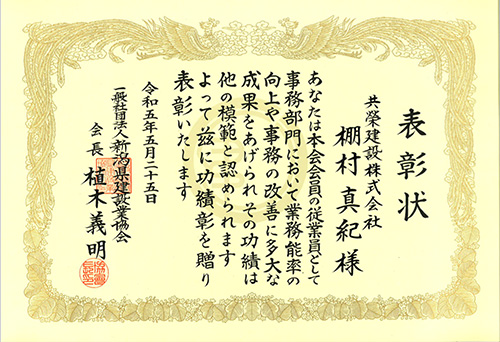 表彰状
共榮建設株式会社
棚村真紀様
あなたは本会会員の従業員として
事務部門において業務能率の
向上や事務の改善に多大な
成果をあげられその功績は
他の模範と認められます
よって茲に功績彰を贈り
表彰いたします
令和五年五月二十五日
一般社団法人新潟県建設業協会
会長植木義明